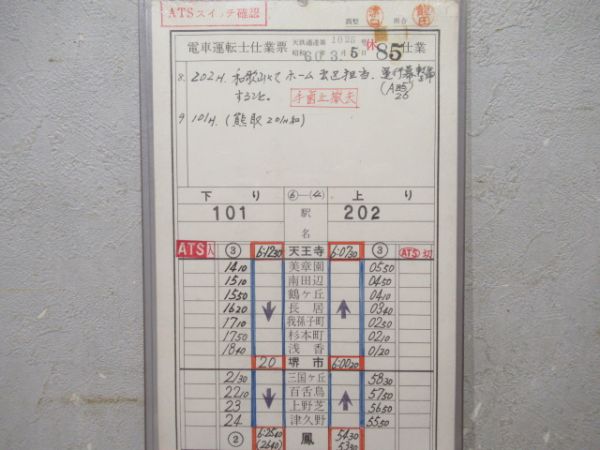 ATSスイッチ確認
調整
照合
電車運転士仕業票
天鉄運達第 1025 号
昭和 60.3.5
休 85 仕業
8. 202H. 和歌山にて ホーム
すること。
手歯止撤去
9 101H. (熊取 201H
下り
上り
101
駅名
202
ATS 入 ③ 6:1230 天王寺 6:0730 ③ ATS 切
1410 美章園 0550
1510 南田辺 0450
1550 鶴ケ丘 0410
1620 長居 0340
1710 我孫子町 0250
1750 杉本町 0210
1840 浅香 0120
20 堺市 6:0020
2130 三国ケ丘 5830
2210 百舌鳥 5750
23 上野芝 5650
24 津久野 5550
② 6:2540 鳳 5430
(2640) 5330